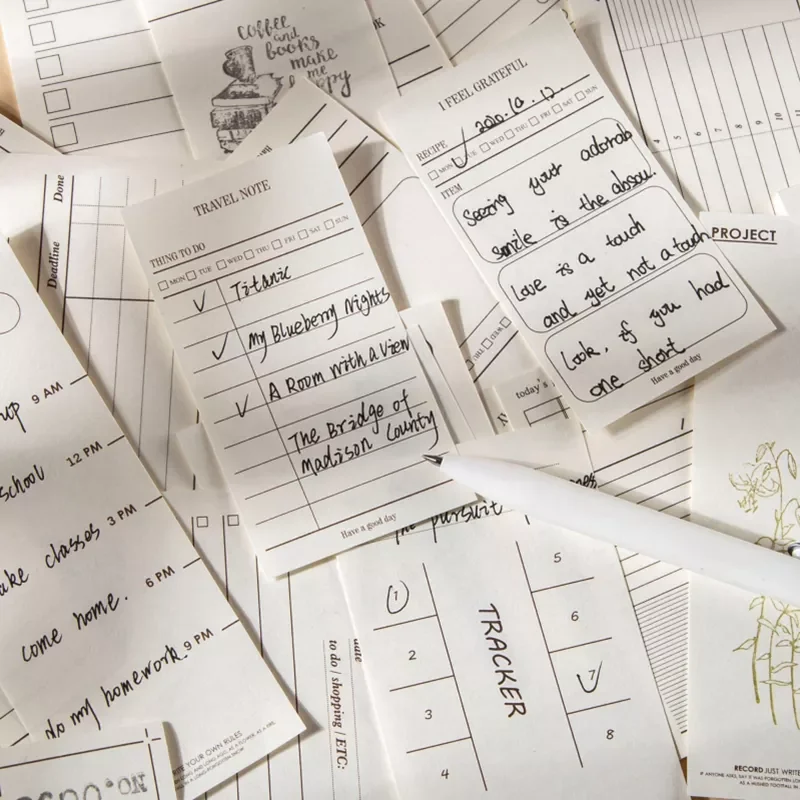 coffee
and
books
make
me
I FEEL GRATEFUL
RECIPE
MON TUE WED THU FRI SAT SUN
ITEM
Seeing your
smile is the
Love is a touch
and yet not a touch
Look, if you had
one short
Have a good day
TRAVEL NOTE
THING TO DO
MON TUE WED THU FRI SAT SUN
Titanic
My Blueberry Nights
A Room with a View
The Bridge of
Madison County
Have a good day
Done
Deadline
9 AM
school 12 PM
classes 3 PM
come home. 6 PM
do my homework. 9 PM
WRITE YOUR OWN RULES
today's
The pursuit
TRACKER
1
2
3
4
5
6
7
8
date
to do / shopping / ETC:
4 5 6 7 8 9 10 11 12
PROJECT
RECORD JUST WRITE
IF ANYONE ASKS, SAY IT WAS FORGOTTEN